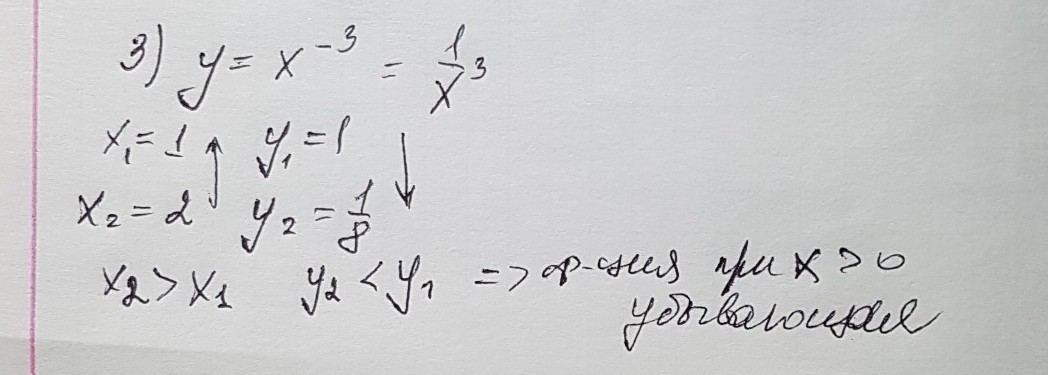 3) y = x⁻³ = 1/x³
x₁ = 1 ↑ y₁ = 1 ↓
x₂ = 2 y₂ = 1/8
x₂ > x₁ y₂ < y₁ => ф-ция при x > 0
убывающая